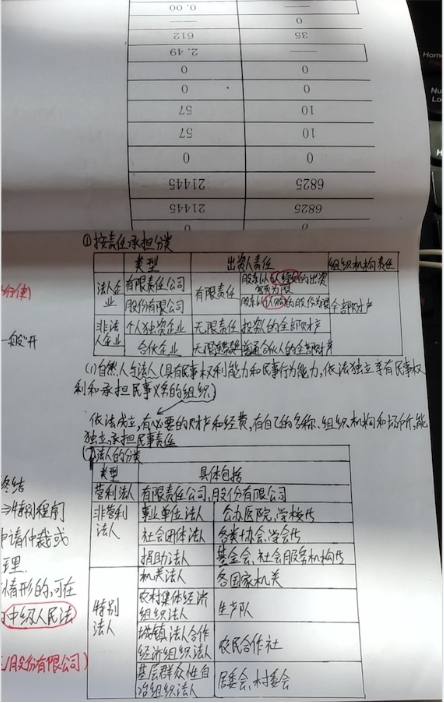 0.00 —
612 35
2.49 —
0 0
0 0
57 10
57 10
0 0
21445 6825
21445 6825
①按责任承担分类
类型 出资人责任 组织机构责任
法人企业 有限责任公司 有限责任 股东以认缴的出资额为限 全部财产
股份有限公司 股东以认购的股份为限
非法人企业 个人独资企业 无限责任 投资人的全部财产
合伙企业 普通合伙人的全部财产
(1)自然人与法人(具有民事权利能力和民事行为能力,依法独立享有民事权
利和承担民事义务的组织)
依法成立,有必要的财产和经费,有自己的名称、组织机构和场所,能
独立承担民事责任
法人的分类
类型 具体包括
营利法人 有限责任公司,股份有限公司
非营利法人 事业单位法人 公办医院,学校代
社会团体法人 各类协会,学会代
捐助法人 基金会,社会服务机构代
特别法人 机关法人 各国家机关
农村集体经济组织法人 生产队
城镇农村合作经济组织法人 农民合作社
基层群众性自治组织法人 居委会,村委会
终结
特别程序
申请仲裁或
理
情形的,可在
中级人民法
股份有限公司)